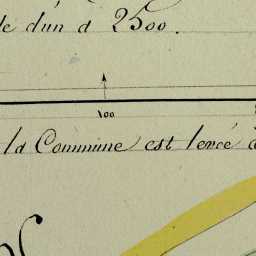 de d'un à 2500.
100
la Commune est levé à